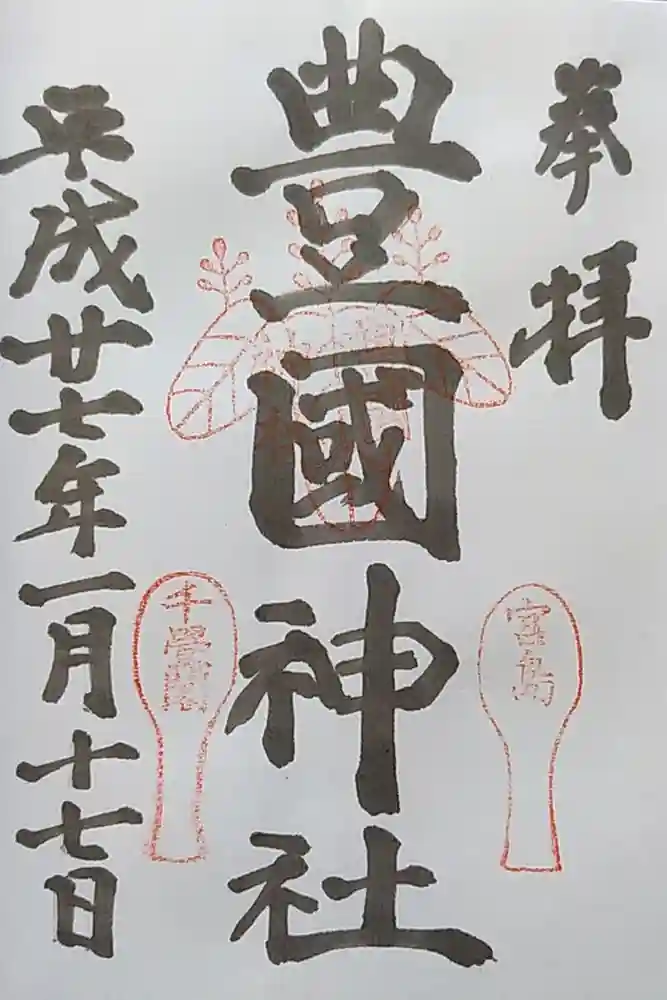 奉拝
豊國神社
平成廿七年一月十七日
宮島
千畳閣